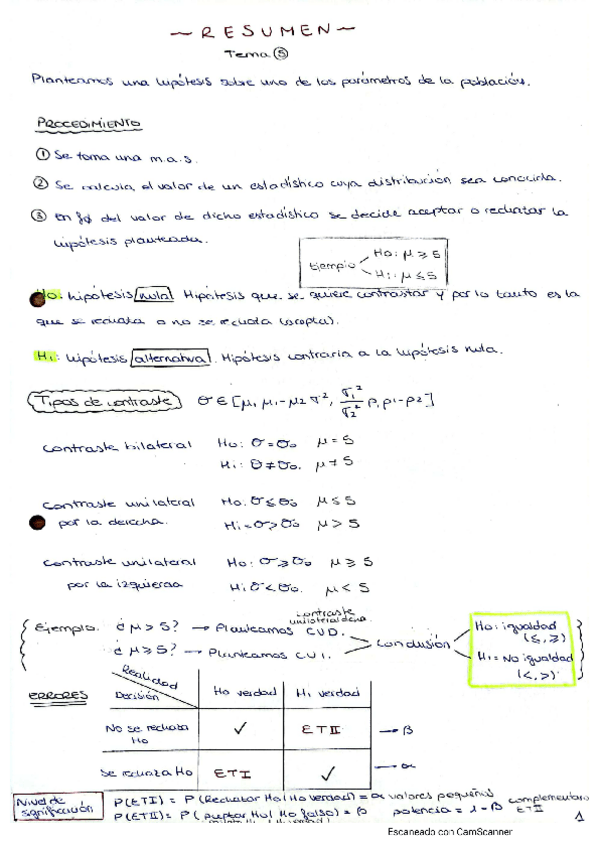 ~ RESUMEN ~
Tema ⑤
Planteamos una hipótesis sobre uno de los parámetros de la población.
PROCEDIMIENTO
① Se toma una m.a.s.
② Se calcula el valor de un estadístico cuya distribución sea conocida.
③ En fx del valor de dicho estadístico se decide aceptar o rechazar la
hipótesis planteada.
Ejemplo
Ho: μ ≥ 5
H1: μ ≤ 5
Ho: hipótesis nula. Hipótesis que se quiere contrastar y por lo tanto es la
que se rechaza o no se rechaza (acepta).
H1: hipótesis alternativa. Hipótesis contraria a la hipótesis nula.
Tipos de contraste θ ∈ [μ, μ1-μ2, σ², σ1²/σ2², p, p1-p2]
contraste bilateral Ho: θ = θo μ = 5
H1: θ ≠ θo. μ ≠ 5
contraste unilateral Ho: θ ≤ θo μ ≤ 5
por la derecha. H1 = θ > θo μ > 5
contraste unilateral Ho: θ ≥ θo μ ≥ 5
por la izquierda H1: θ < θo. μ < 5
Ejemplo. ¿ μ > 5? → Planteamos CUD.
contraste
unilateral dcha
¿ μ ≥ 5? → Planteamos CUI.
Conclusión
Ho: igualdad
(≤, ≥)
H1 = No igualdad
(<, >)
ERRORES
Realidad
Decisión
Ho verdad H1 verdad
No se rechaza
Ho
✓ ETII → β
Se rechaza Ho ETI ✓ → α
Nivel de
significación
P(ETI) = P(Rechazar Ho | Ho verdad) = α valores pequeños
P(ETII) = P(aceptar Ho | Ho falso) = β potencia = 1 - β complementario
ETII
1
Escaneado con CamScanner